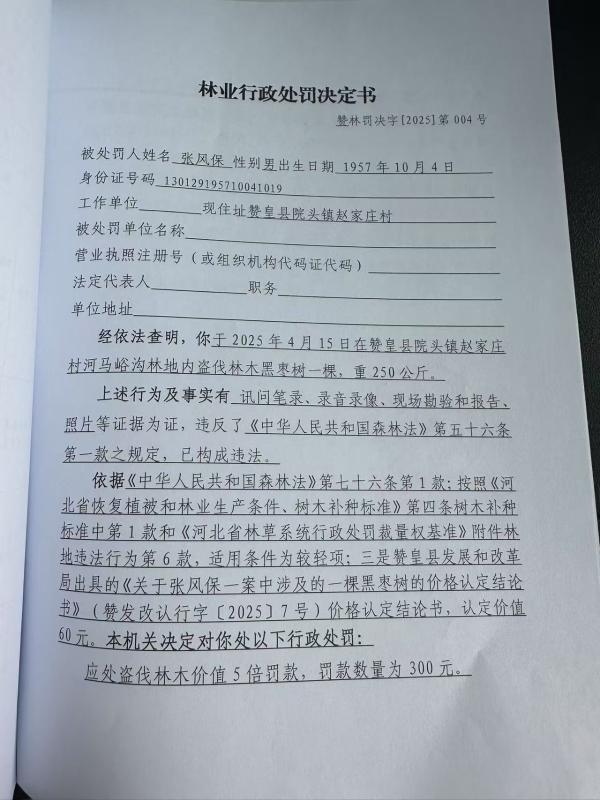 林业行政处罚决定书
赞林罚决字[2025]第 004 号
被处罚人姓名 张风保 性别男出生日期 1957 年 10 月 4 日
身份证号码 130129195710041019
工作单位 现住址赞皇县院头镇赵家庄村
被处罚单位名称
营业执照注册号（或组织机构代码证代码）
法定代表人 职务
单位地址
经依法查明，你于 2025 年 4 月 15 日在赞皇县院头镇赵家庄
村河马峪沟林地内盗伐林木黑枣树一棵，重 250 公斤。
上述行为及事实有 讯问笔录、录音录像、现场勘验和报告、
照片等证据为证，违反了《中华人民共和国森林法》第五十六条
第一款之规定，已构成违法。
依据《中华人民共和国森林法》第七十六条第 1 款；按照《河
北省恢复植被和林业生产条件、树木补种标准》第四条树木补种
标准中第 1 款和《河北省林草系统行政处罚裁量权基准》附件林
地违法行为第 6 款，适用条件为较轻项；三是赞皇县发展和改革
局出具的《关于张风保一案中涉及的一棵黑枣树的价格认定结论
书》（赞发改认行字〔2025〕7 号）价格认定结论书，认定价值
60 元。本机关决定对你处以下行政处罚：
应处盗伐林木价值 5 倍罚款，罚款数量为 300 元。